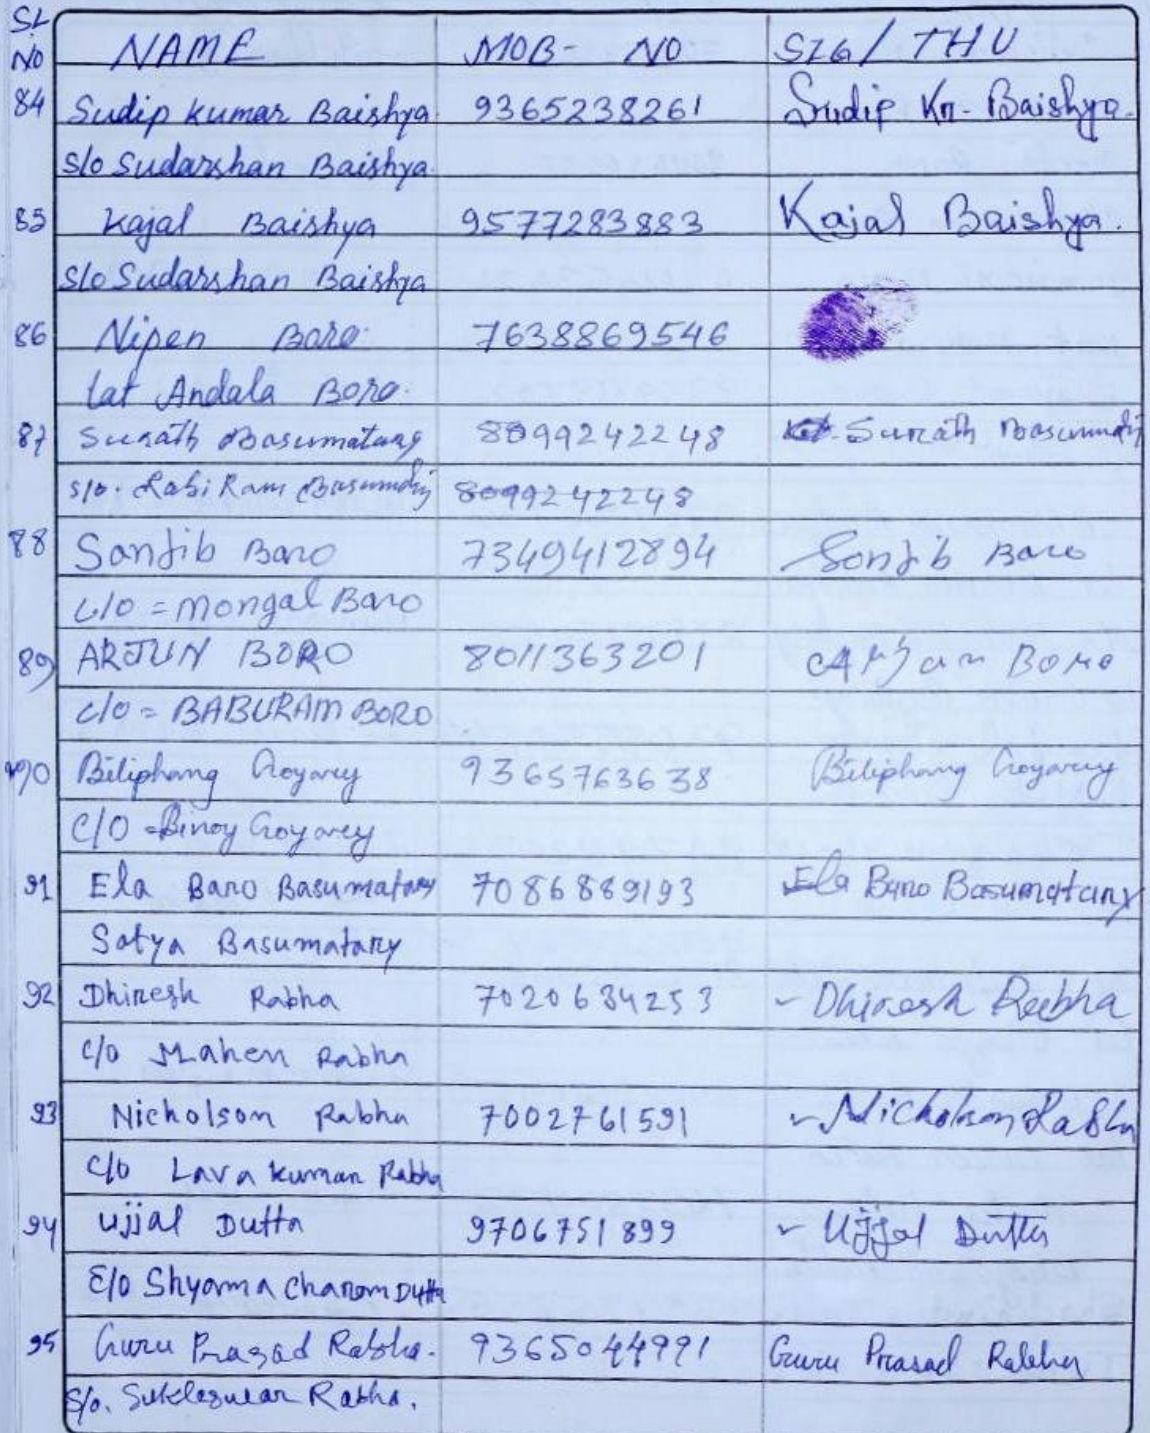 SL NO NAME MOB- NO SIG/THU
84 Sudip Kumar Baishya. 9365238261 Sudip Kr- Baishya.
S/o Sudarshan Baishya.
85 Kajal Baishya 9577283883 Kajal Baishya.
S/o Sudarshan Baishya
86 Nipen Boro. 7638869546
Lat Andala Boro.
87 Surath Basumatary 8099242248 Surath
S/o. Rabi Ram 8099242248
88 Sanjib Baro 7349412894 Sonjib Baro
C/O = Mongal Baro
89 ARJUN BORO 8011363201 Arjun Boro
C/O = BABURAM BORO
90 Biliphang Goyary 9365763638 Biliphang Goyary
C/O = Binoy Goyary
91 Ela Baro Basumatary 7086889193 Ela Baro Basumatary
Satya Basumatary
92 Dhiresh Rabha 7020634253 Dhiresh Rabha
C/o Mahen Rabha
93 Nicholson Rabha 7002761591 Nicholson Rabha
C/o Lava Kumar Rabha
94 Ujjal Dutta 9706751899 Ujjal Dutta
C/O Shyama Charan Dutta
95 Guru Prasad Rabha. 9365044991 Guru Prasad Rabha
S/o. Rabha.